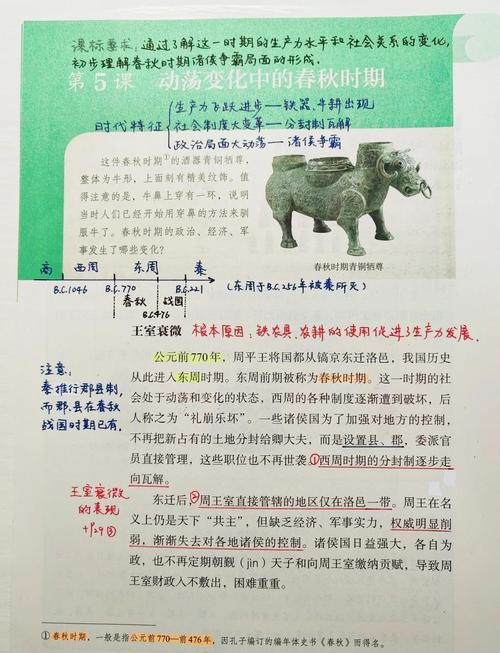 课标要求:通过了解这一时期的生产力水平和社会关系的变化,
初步理解春秋时期诸侯争霸局面的形成。
第5课 动荡变化中的春秋时期
时代特征
生产力飞跃进步——铁器、牛耕出现
社会制度大变革——分封制瓦解
政治局面大动荡——诸侯争霸
这件春秋时期①的酒器青铜牺尊,
整体为牛形,上面刻有精美纹饰。值
得注意的是,牛鼻上穿有一环,说明
当时人们已经开始用穿鼻的方法来驯
服牛了。春秋时期的政治、经济、军
事发生了哪些变化?
春秋时期青铜牺尊
商 西周 东周 秦
B.C.1046 B.C.770 B.C.221 (东周于B.C.256年被秦所灭)
春秋 战国
B.C.476
王室衰微 根本原因:铁农具、牛耕的使用促进了生产力发展。
公元前770年,周平王将国都从镐京东迁洛邑,我国历史
从此进入东周时期。东周前期被称为春秋时期。这一时期的社
会处于动荡和变化的状态,西周的各种制度逐渐遭到破坏,后
人称之为“礼崩乐坏”。一些诸侯国为了加强对地方的控制,
不再把新占有的土地分封给卿大夫,而是设置县、郡,委派官
员直接管理,这些职位也不再世袭。①西周时期的分封制逐步走
向瓦解。
注意:
秦推行郡县制,
而郡、县在春秋
战国时期已有.
东迁后,②周王室直接管辖的地区仅在洛邑一带。周王在名
义上仍是天下“共主”,但缺乏经济、军事实力,权威明显削
弱,渐渐失去对各地诸侯的控制。诸侯国日益强大,各自为
政,也不再定期朝觐(jìn)天子和向周王室缴纳贡赋,导致周
王室财政入不敷出,困难重重。
王室衰微
的表现
+P29③
①春秋时期,一般是指公元前770—前476年,因孔子编订的编年体史书《春秋》而得名。